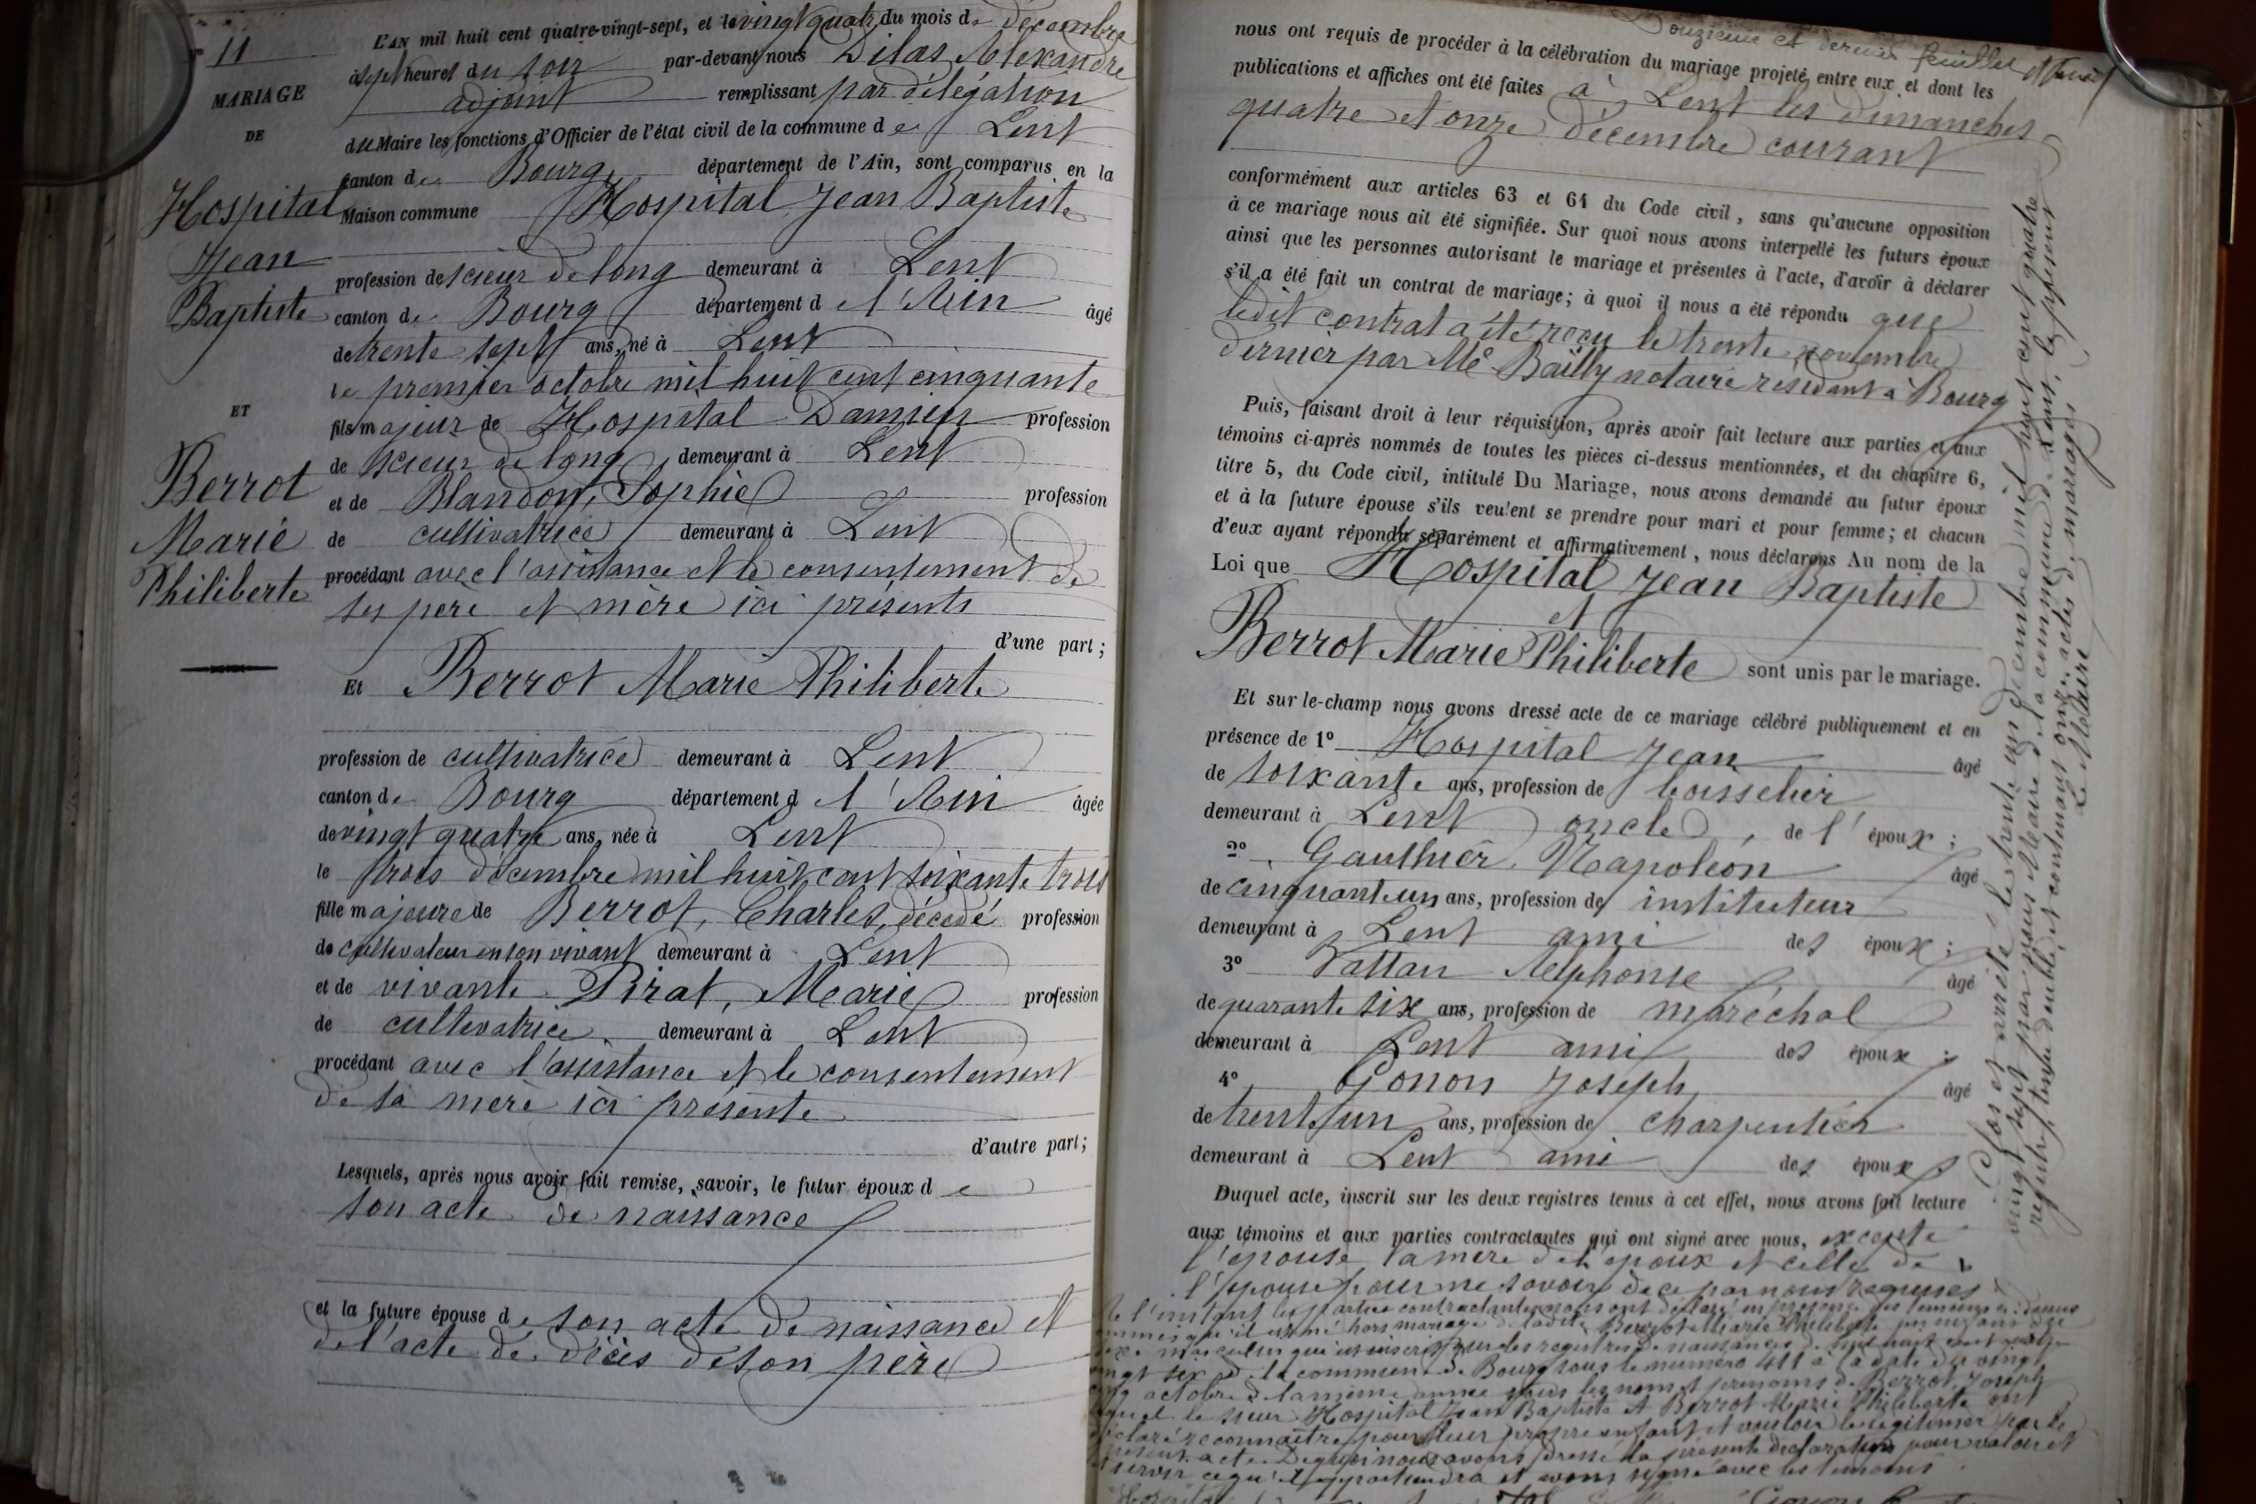 N° 11
MARIAGE
DE
Hospital
Jean
Baptiste
ET
Berrot
Marie
Philiberte
L'AN mil huit cent quatre-vingt-sept, et le vingt quatre du mois de décembre
à sept heures du soir par-devant nous Dilas Alexandre
adjoint remplissant par délégation
du Maire les fonctions d'Officier de l'état civil de la commune de Lent
canton de Bourg, département de l'Ain, sont comparus en la
Maison commune Hospital Jean Baptiste
profession de scieur de long demeurant à Lent
canton de Bourg département de l'Ain âgé
de trente sept ans, né à Lent
le premier octobre mil huit cent cinquante
fils majeur de Hospital Damien profession
de scieur de long demeurant à Lent
et de Blandon, Sophie profession
de cultivatrice demeurant à Lent
procédant avec l'assistance et le consentement de
ses père et mère ici présents
d'une part;
Et Berrot Marie Philiberte
profession de cultivatrice demeurant à Lent
canton de Bourg département d l'Ain âgée
de vingt quatre ans, née à Lent
le trois décembre mil huit cent soixante trois
fille majeure de Berrot, Charles, décédé profession
de cultivateur en son vivant demeurant à Lent
et de vivante Pirat, Marie profession
de cultivatrice demeurant à Lent
procédant avec l'assistance et le consentement
de sa mère ici présente
d'autre part;
Lesquels, après nous avoir fait remise, savoir, le futur époux de
son acte de naissance
et la future épouse de son acte de naissance et
de l'acte de décès de son père
Douzième et dernier feuillet
nous ont requis de procéder à la célébration du mariage projeté entre eux et dont les
publications et affiches ont été faites à Lent les dimanches
quatre et onze décembre courant
conformément aux articles 63 et 64 du Code civil, sans qu'aucune opposition
à ce mariage nous ait été signifiée. Sur quoi nous avons interpellé les futurs époux
ainsi que les personnes autorisant le mariage et présentes à l'acte, d'avoir à déclarer
s'il a été fait un contrat de mariage; à quoi il nous a été répondu que
ledit contrat a été reçu le trente novembre
dernier par Me Bailly notaire résidant à Bourg
Puis, faisant droit à leur réquisition, après avoir fait lecture aux parties et aux
témoins ci-après nommés de toutes les pièces ci-dessus mentionnées, et du chapitre 6,
titre 5, du Code civil, intitulé Du Mariage, nous avons demandé au futur époux
et à la future épouse s'ils veulent se prendre pour mari et pour femme; et chacun
d'eux ayant répondu séparément et affirmativement, nous déclarons Au nom de la
Loi que Hospital Jean Baptiste
et
Berrot Marie Philiberte sont unis par le mariage.
Et sur le-champ nous avons dressé acte de ce mariage célébré publiquement et en
présence de 1° Hospital Jean âgé
de soixante ans, profession de boisselier
demeurant à Lent oncle, de l'époux;
2° Gauthier Napoléon âgé
de cinquante un ans, profession de instituteur
demeurant à Lent ami des époux;
3° Vattan Alphonse âgé
de quarante six ans, profession de maréchal
demeurant à Lent ami des époux;
4° Gonon Joseph âgé
de trente un ans, profession de charpentier
demeurant à Lent ami des époux
Duquel acte, inscrit sur les deux registres tenus à cet effet, nous avons fait lecture
aux témoins et aux parties contractantes qui ont signé avec nous, excepté
l'épouse, la mère de l'époux et celle de
l'épouse pour ne savoir de ce par nous requises
A l'instant les parties contractantes nous ont déclaré en présence des témoins
qu'il est né hors mariage de ladite Berrot Marie Philiberte un enfant de
sexe masculin qui est inscrit sur les registres de naissances de mil huit cent quatre
vingt six de la commune de Bourg sous le numéro 411 à la date du vingt
cinq octobre de la même année sous les noms et prénoms de Berrot Joseph
lequel le sieur Hospital Jean Baptiste et Berrot Marie Philiberte ont
déclaré reconnaître pour leur propre enfant et vouloir le légitimer par le
présent acte. De quoi nous avons dressé la présente déclaration pour valoir et
servir ce qu'il appartiendra et avons signé avec les témoins
Clos et arrêté le trente un décembre mil huit cent quatre
vingt sept par nous Maire de la commune de Lent, le présent
registre, tenu double, et contenant onze actes de mariages
Le Maire